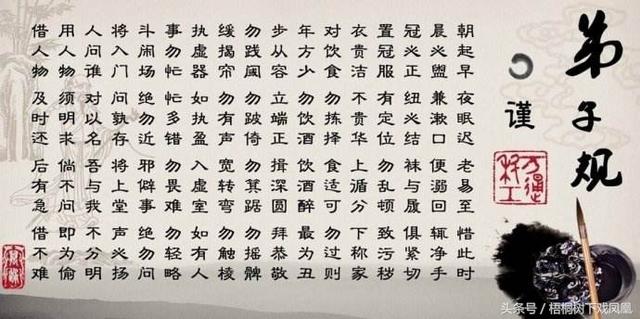 弟子规
谨
朝起早 夜眠迟 老易至 惜此时
晨必盥 兼漱口 便溺回 辄净手
冠必正 纽必结 袜与履 俱紧切
置冠服 有定位 勿乱顿 致污秽
衣贵洁 不贵华 上循分 下称家
对饮食 勿拣择 食适可 勿过则
年方少 勿饮酒 饮酒醉 最为丑
步从容 立端正 揖深圆 拜恭敬
勿践阈 勿跛倚 勿箕踞 勿摇髀
缓揭帘 勿有声 宽转弯 勿触棱
执虚器 如执盈 入虚室 如有人
事勿忙 忙多错 勿畏难 勿轻略
斗闹场 绝勿近 邪僻事 绝勿问
将入门 问孰存 将上堂 声必扬
人问谁 对以名 吾与我 不分明
用人物 须明求 倘不问 即为偷
借人物 及时还 后有急 借不难
头条号/梧桐树下戏凤凰